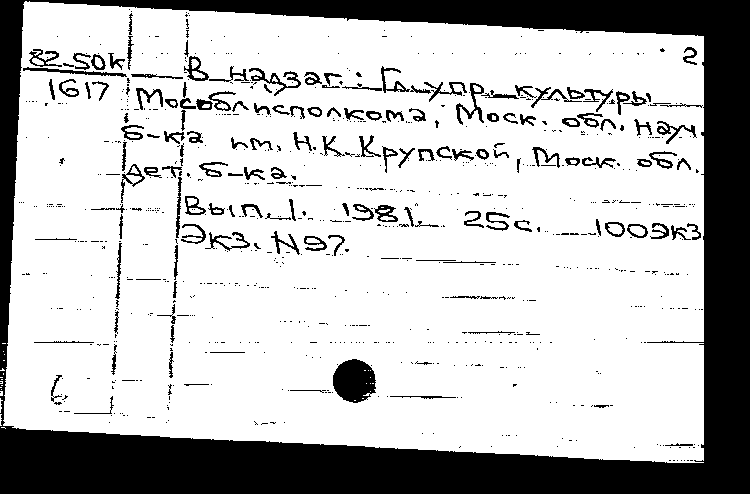 2.
82-50к
1617
В надзаг.: Гл. упр. культуры
Мособлисполкома, Моск. обл. науч.
б-ка им. Н.К. Крупской, Моск. обл.
дет. б-ка.
Вып. 1. 1981. 25с. 100экз.
Экз. N97.
6